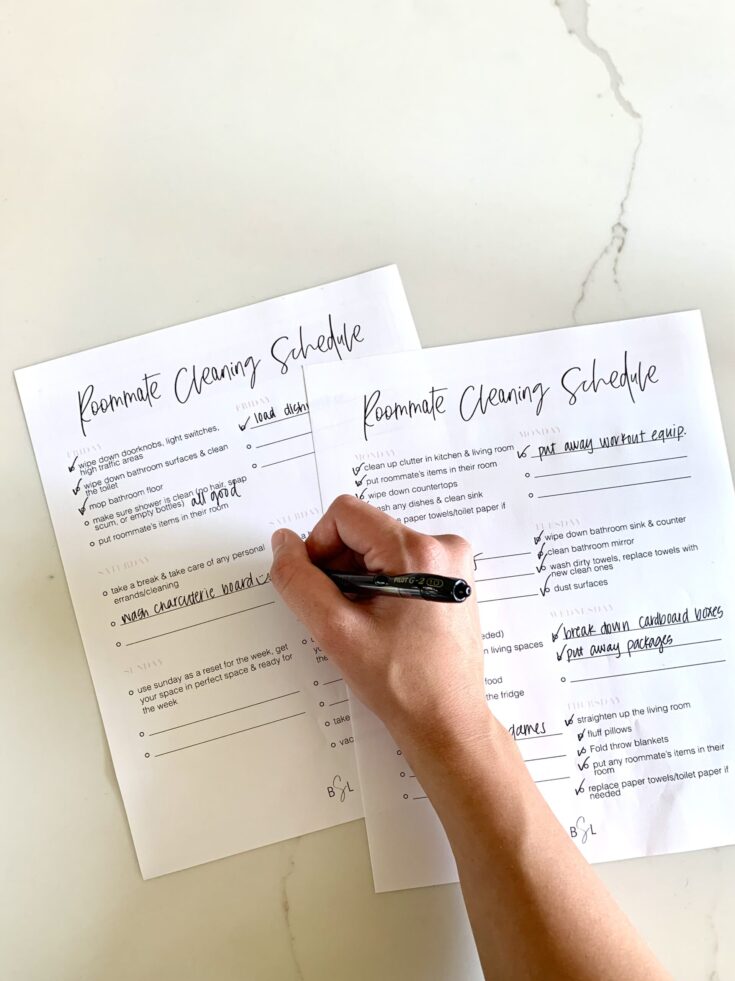 Roommate Cleaning Schedule
FRIDAY
wipe down doorknobs, light switches,
high traffic areas
wipe down bathroom surfaces & clean
the toilet
mop bathroom floor
make sure shower is clean (no hair, soap
scum, or empty bottles) all good
put roommate's items in their room
FRIDAY
load
SATURDAY
take a break & take care of any personal
errands/cleaning
wash charcuterie board
SATURDAY
SUNDAY
use sunday as a reset for the week, get
your space in perfect space & ready for
the week
take
BSL
Roommate Cleaning Schedule
MONDAY
clean up clutter in kitchen & living room
put roommate's items in their room
wipe down countertops
any dishes & clean sink
paper towels/toilet paper if
MONDAY
put away workout equip.
TUESDAY
wipe down bathroom sink & counter
clean bathroom mirror
wash dirty towels, replace towels with
new clean ones
dust surfaces
living spaces
food
the fridge
WEDNESDAY
break down cardboard boxes
put away packages
THURSDAY
straighten up the living room
fluff pillows
Fold throw blankets
put any roommate's items in their
room
replace paper towels/toilet paper if
needed
BSL
PILOT G-2 10